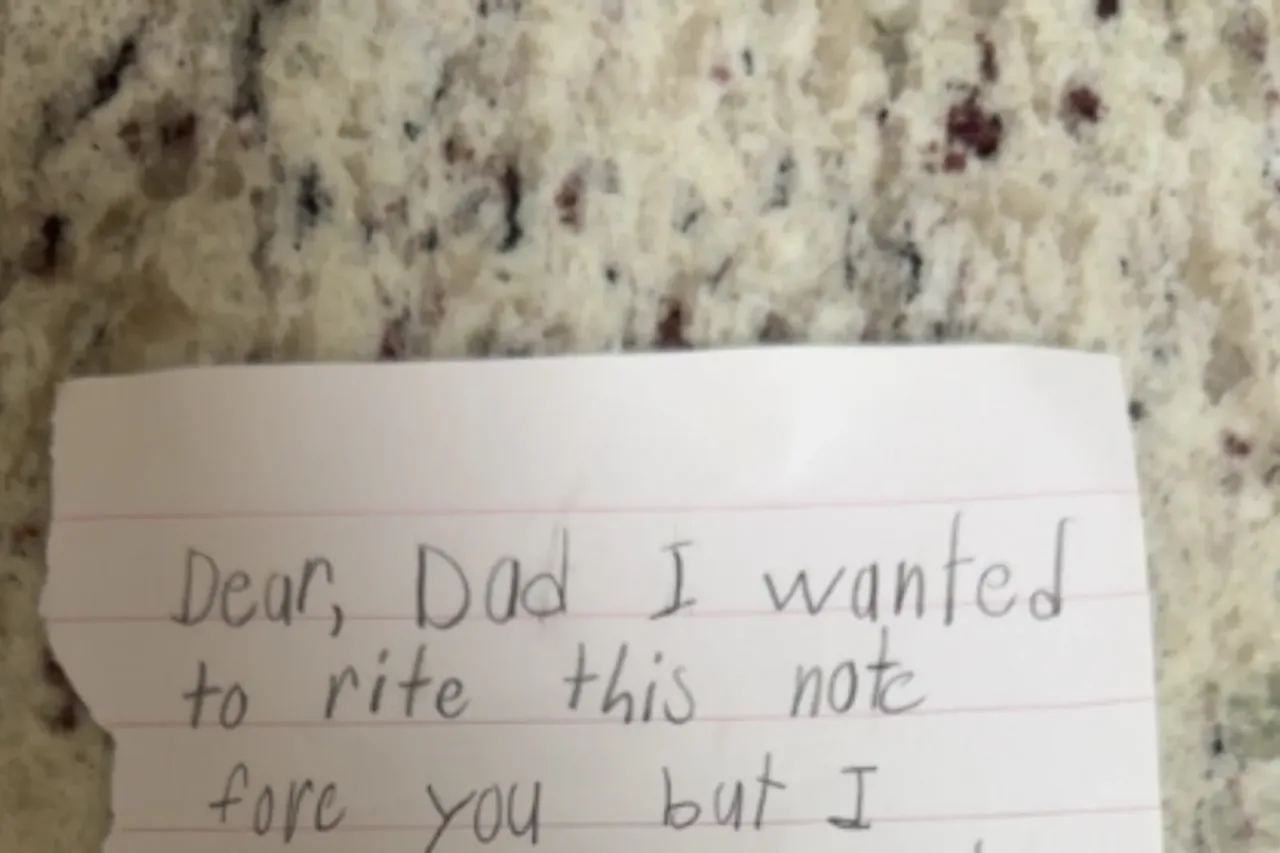 Dear, Dad I wanted
to rite this note
fore you but I